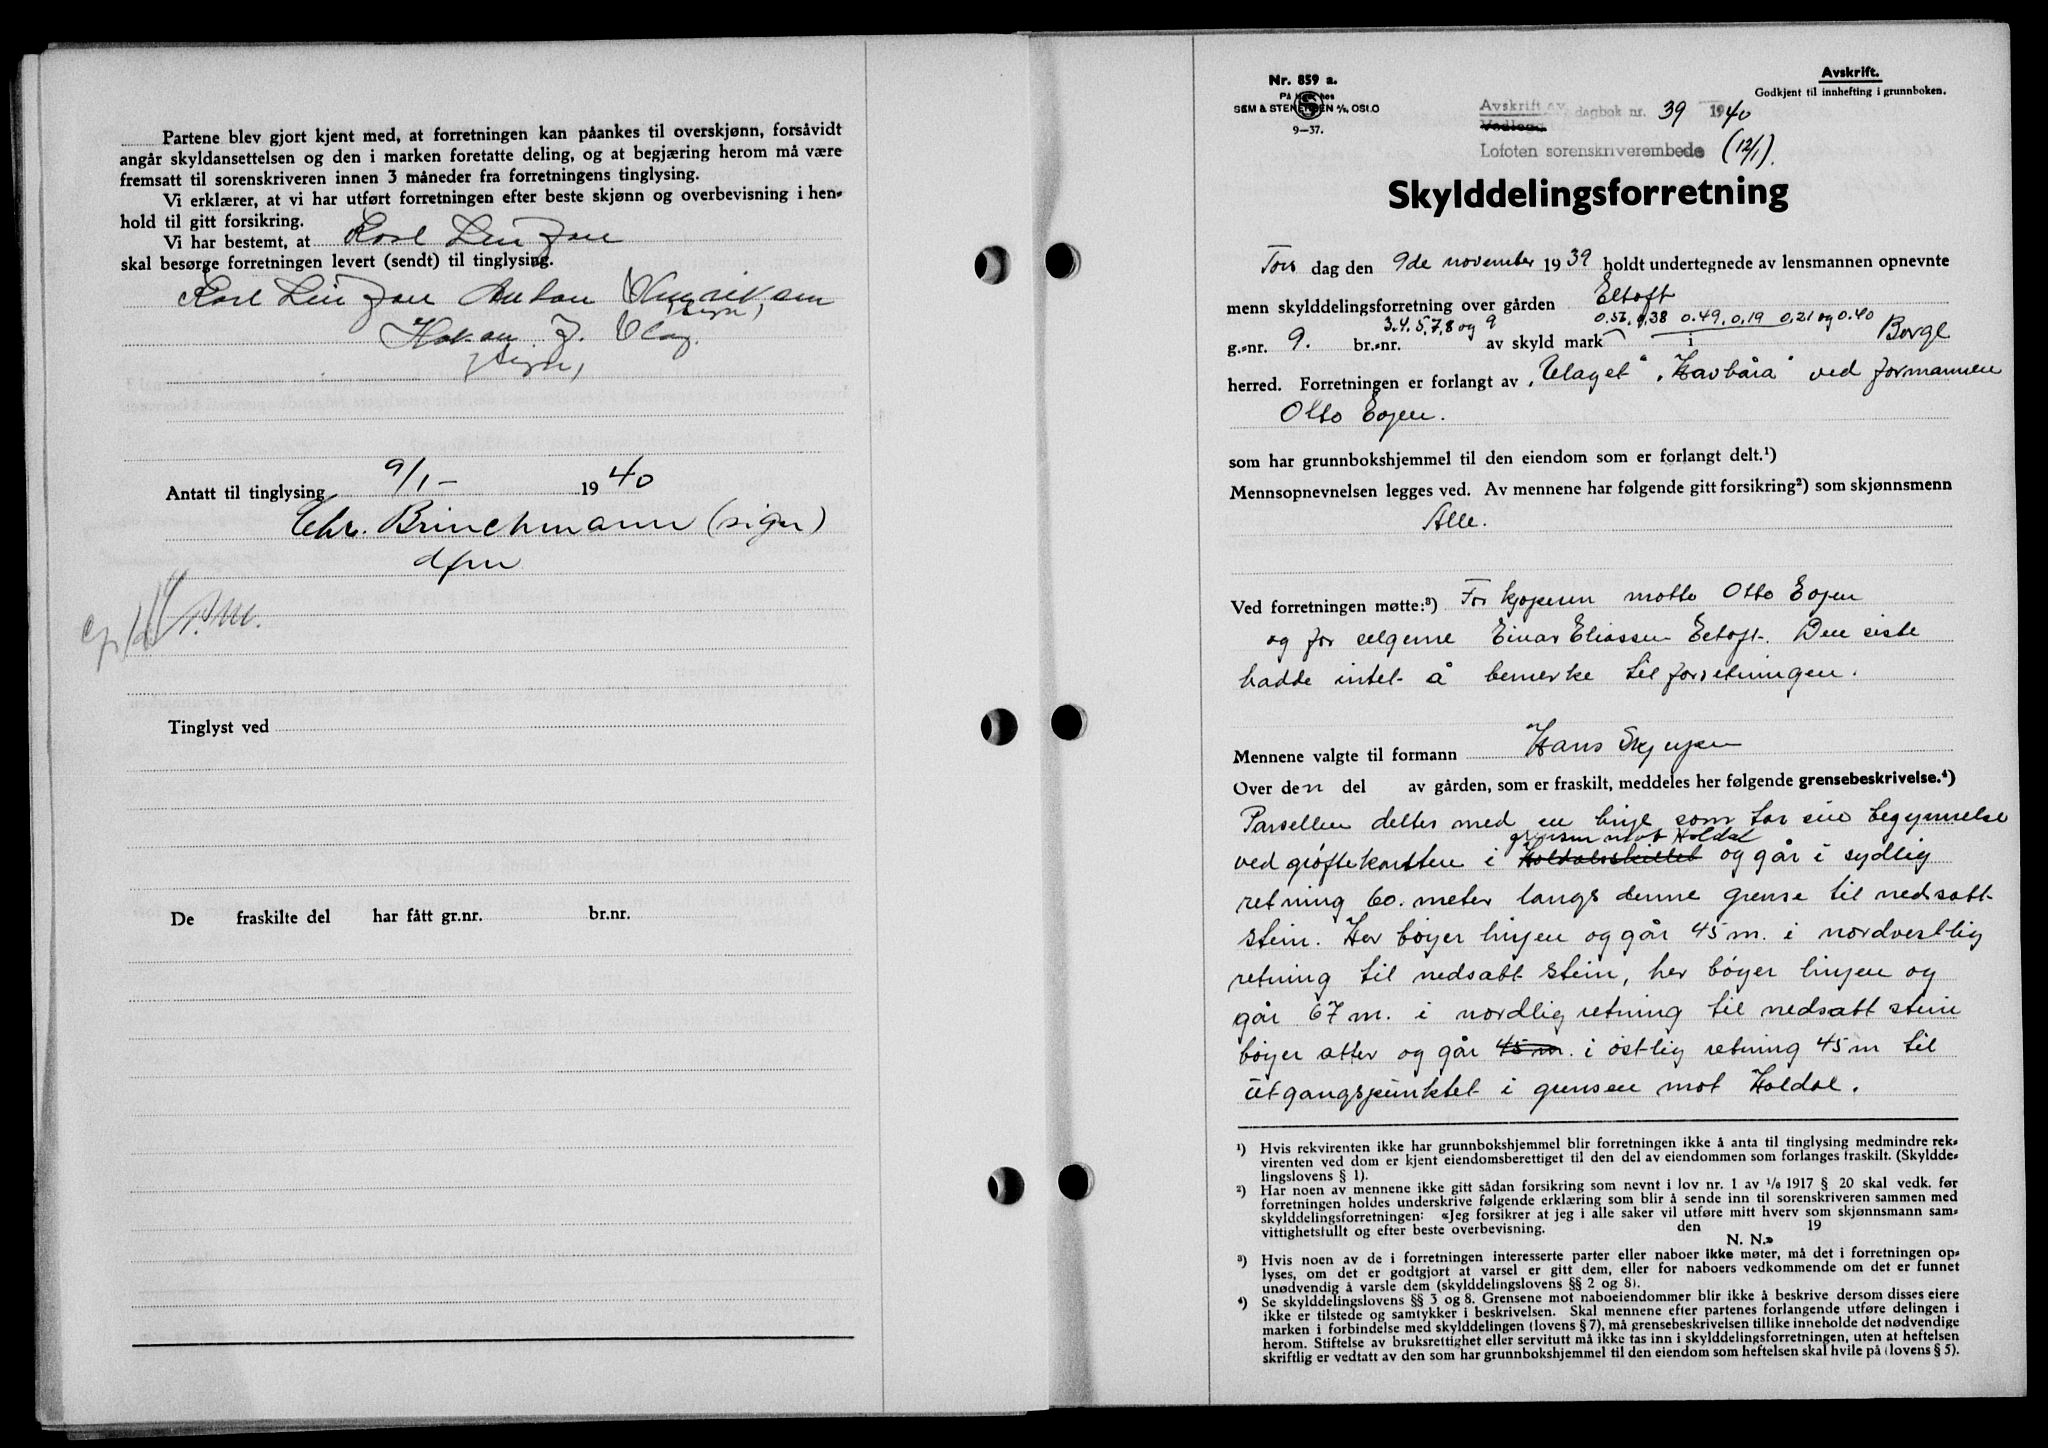 Partene blev gjort kjent med, at forretningen kan påankes til overskjønn, forsåvidt
angår skyldansettelsen og den i marken foretatte deling, og at begjæring herom må være
fremsatt til sorenskriveren innen 3 måneder fra forretningens tinglysing.
Vi erklærer, at vi har utført forretningen efter beste skjønn og overbevisning i hen-
hold til gitt forsikring.
Vi har bestemt, at Karl
skal besørge forretningen levert (sendt) til tinglysing.
Karl
Antatt til tinglysing 9/1- 1940
Chr. Brinchmann (sign)
dfm
Tinglyst ved
De fraskilte del har fått gr.nr. br.nr.
Nr. 859 a.
SEM & STENERSEN A/S, OSLO
9-37.
Avskrift.
Godkjent til innhefting i grunnboken.
Avskrift av
Vedlegg dagbok nr. 39 1940
Lofoten sorenskriverembede (12/1).
Skylddelingsforretning
Tors dag den 9de november 1939 holdt undertegnede av lensmannen opnevnte
menn skylddelingsforretning over gården Eltoft
3.4.5.7.8 og 9 0.53, 0.38 0.49, 0.19 0.21 og 0.40
g.-nr. 9. br.-nr. av skyld mark i Borge
herred. Forretningen er forlangt av "Havbåra" ved formannen
Otto
som har grunnbokshjemmel til den eiendom som er forlangt delt.¹)
Mennsopnevnelsen legges ved. Av mennene har følgende gitt forsikring²) som skjønnsmenn
Alle.
Ved forretningen møtte:³) For kjøperen møtte Otto
og for selgerne Einar Eliassen Eltoft. Den siste
hadde intet å bemerke til forretningen.
Mennene valgte til formann Hans
Over den del av gården, som er fraskilt, meddeles her følgende grensebeskrivelse.⁴)
Parsellen deltes med en linje som tar sin begynnelse
grensen mot Holdal
ved grøftekanten i Holdalsskillet og går i sydlig
retning 60. meter langs denne grense til nedsatt
stein. Her bøyer linjen og går 45 m. i nordvestlig
retning til nedsatt stein, her bøyer linjen og
går 67 m. i nordlig retning til nedsatt stein
bøyer atter og går 45 m. i østlig retning 45 m til
utgangspunktet i grensen mot Holdal.
¹) Hvis rekvirenten ikke har grunnbokshjemmel blir forretningen ikke å anta til tinglysing medmindre rek-
virenten ved dom er kjent eiendomsberettiget til den del av eiendommen som forlanges fraskilt. (Skyldde-
lingslovens § 1).
²) Har noen av mennene ikke gitt sådan forsikring som nevnt i lov nr. 1 av 1/6 1917 § 20 skal vedk. før
forretningen holdes underskrive følgende erklæring som blir å sende inn til sorenskriveren sammen med
skylddelingsforretningen: «Jeg forsikrer at jeg i alle saker vil utføre mitt hverv som skjønnsmann sam-
vittighetsfullt og efter beste overbevisning. den 19
N. N.»
³) Hvis noen av de i forretningen interesserte parter eller naboer ikke møter, må det i forretningen op-
lyses, om det er godtgjort at varsel er gitt dem, eller for naboers vedkommende om det er funnet
unødvendig å varsle dem (skylddelingslovens §§ 2 og 8).
⁴) Se skylddelingslovens §§ 3 og 8. Grensene mot naboeiendommer blir ikke å beskrive dersom disses eiere
ikke er tilstede og samtykker i beskrivelsen. Skal mennene efter partenes forlangende utføre delingen i
marken i forbindelse med skylddelingen (lovens § 7), må grensebeskrivelsen tillike inneholde det nødvendige
herom. Stiftelse av bruksrettighet eller servitutt må ikke tas inn i skylddelingsforretningen, uten at heftelsen
skriftlig er vedtatt av den som har grunnbokshjemmel til den eiendom som heftelsen skal hvile på (lovens § 5).